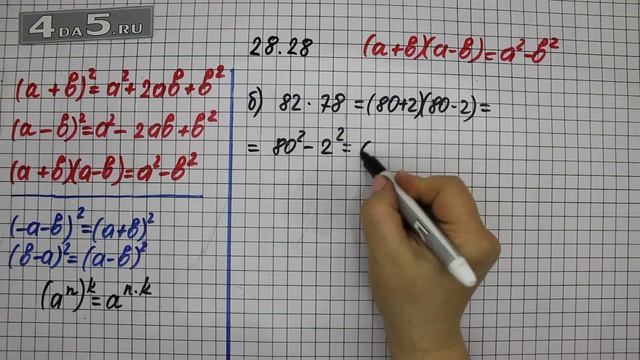 4DA5.RU
(a + b)² = a² + 2ab + b²
(a - b)² = a² - 2ab + b²
(a + b)(a - b) = a² - b²
(-a - b)² = (a + b)²
(b - a)² = (a - b)²
(aⁿ)ᵏ = aⁿ·ᵏ
28.28 (a + b)(a - b) = a² - b²
б) 82 · 78 = (80 + 2)(80 - 2) =
= 80² - 2² =